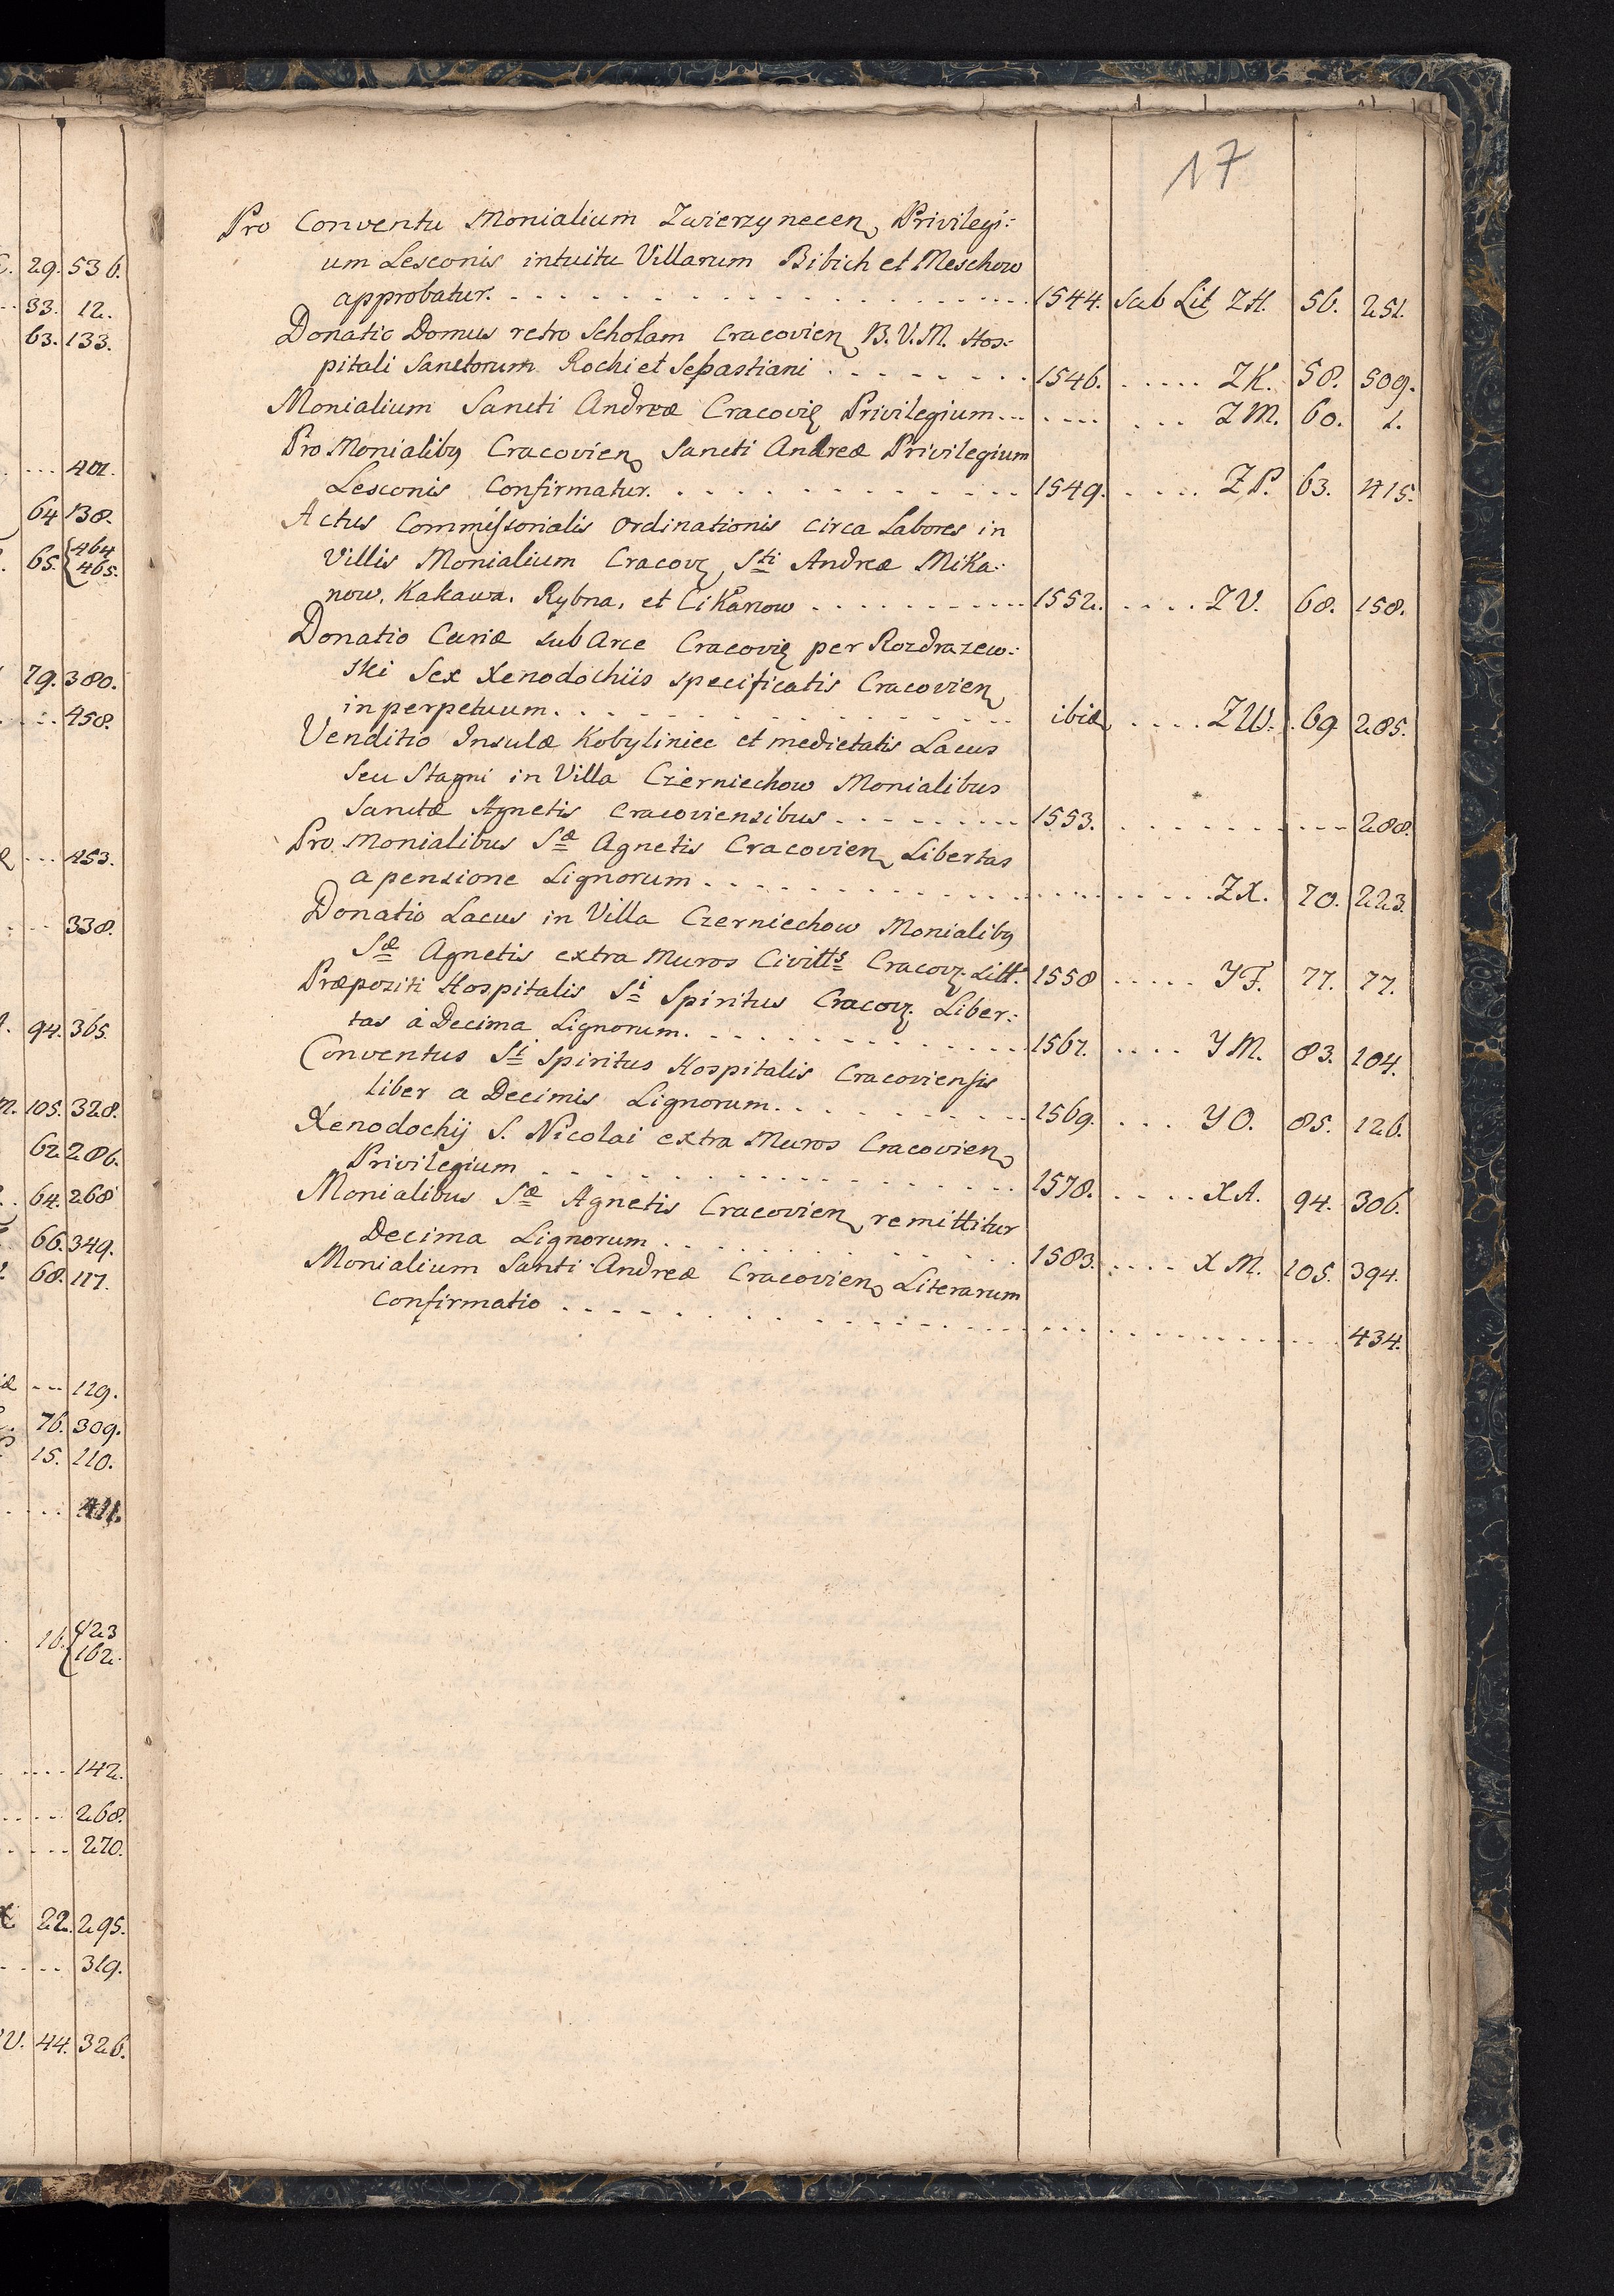 17
Pro Conventu Monialium Zwierzynecen, Privilegi:
um Lesconis intuitu Villarum Bibich et Meschow
approbatur. 1544. Sub Lit ZH. 56. 251.
Donatio Domus retro Scholam Cracovien, B. V. M. Hos:
pitali Sanctorum Rochi et Sebastiani 1546. ZK. 58. 509.
Monialium Sancti Andreæ Cracovię Privilegium ZM. 60. 1.
Pro Monialibꝰ Cracovien, Sancti Andreæ Privilegium
Lesconis Confirmatur. 1549. ZP. 63. 415.
Actus Commissorialis Ordinationis circa Labores in
Villis Monialium Cracov, Sti Andreæ Mika:
now, Kakawa, Rybna, et Cikanow 1552. ZV. 68. 158.
Donatio Curiæ sub Arce Cracovię per Rozdrazew:
ski Sex Xenodochiis specificatis Cracovien,
in perpetuum. ibid, ZW. 69 285.
Venditio Insulæ Kobyliniec et medietatis Lacus
seu Stagni in Villa Czerniechow Monialibus
Sanctæ Agnetis Cracoviensibus 1553. 288.
Pro Monialibus Sæ Agnetis Cracovien, Libertas
a pensione Lignorum ZX. 70. 223.
Donatio Lacus in Villa Czerniechow Monialibꝰ
Sæ Agnetis extra Muros Civitts Cracov. Litt. 1558 YF. 77. 77.
Præpoziti Hospitalis Si Spiritus Cracov. Liber:
tas à Decima Lignorum. 1567. YM. 83. 104.
Conventus Si Spiritus Hospitalis Cracoviensis
liber a Decimis Lignorum. 1569. YO. 85. 126.
Xenodochij S. Nicolai extra Muros Cracovien,
Privilegium 1578. XA. 94. 306.
Monialibus Sæ Agnetis Cracovien, remittitur
Decima Lignorum 1583. XM. 105. 394.
Monialium Santi Andreæ Cracovien, Literarum
Confirmatio 434.
29. 536.
33. 12.
63. 133.
401.
64 138.
65. {464
465.
79. 380.
458.
453.
338.
94. 365.
105. 328.
62 286.
64. 268
66. 349.
68. 117.
119.
76. 309.
15. 110.
411.
16. {423
162.
142.
268.
270.
22. 295.
319.
44. 326.